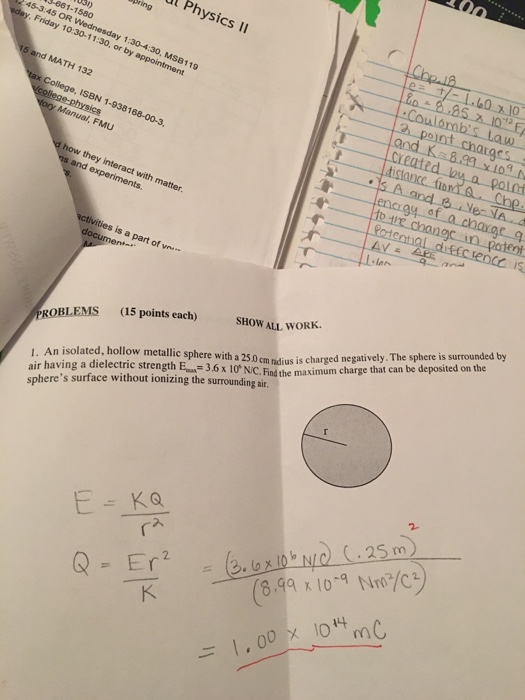 Physics II
pring
03I)
3-661-1580
2:45-3:45 OR Wednesday 1:30-4:30, MSB119
day, Friday 10:30-11:30, or by appointment
15 and MATH 132
tax College, ISBN 1-938168-00-3,
/college-physics
tory Manual, FMU
d how they interact with matter.
ns and experiments.
s.
activities is a part of
document
100
Chp. 18
e = +/- 1.60 x 10
ε0 = 8.85 x 10-12 F
• Coulomb's Law
2 point charges
and K = 8.99 x 109 N
created by a point
distance from Q. Chp.
• S A and B, VB- VA
energy of a charge q
to the change in potent
Potential difference is
ΔV = ΔPE and
q
PROBLEMS (15 points each) SHOW ALL WORK.
1. An isolated, hollow metallic sphere with a 25.0 cm radius is charged negatively. The sphere is surrounded by
air having a dielectric strength Emax= 3.6 x 10⁶ N/C. Find the maximum charge that can be deposited on the
sphere's surface without ionizing the surrounding air.
r
E = KQ
r²
Q = Er² = (3.6 x 10⁶ N/C) (.25m)²
K (8.99 x 10⁻⁹ Nm²/C²)
= 1.00 x 10¹⁴ mC